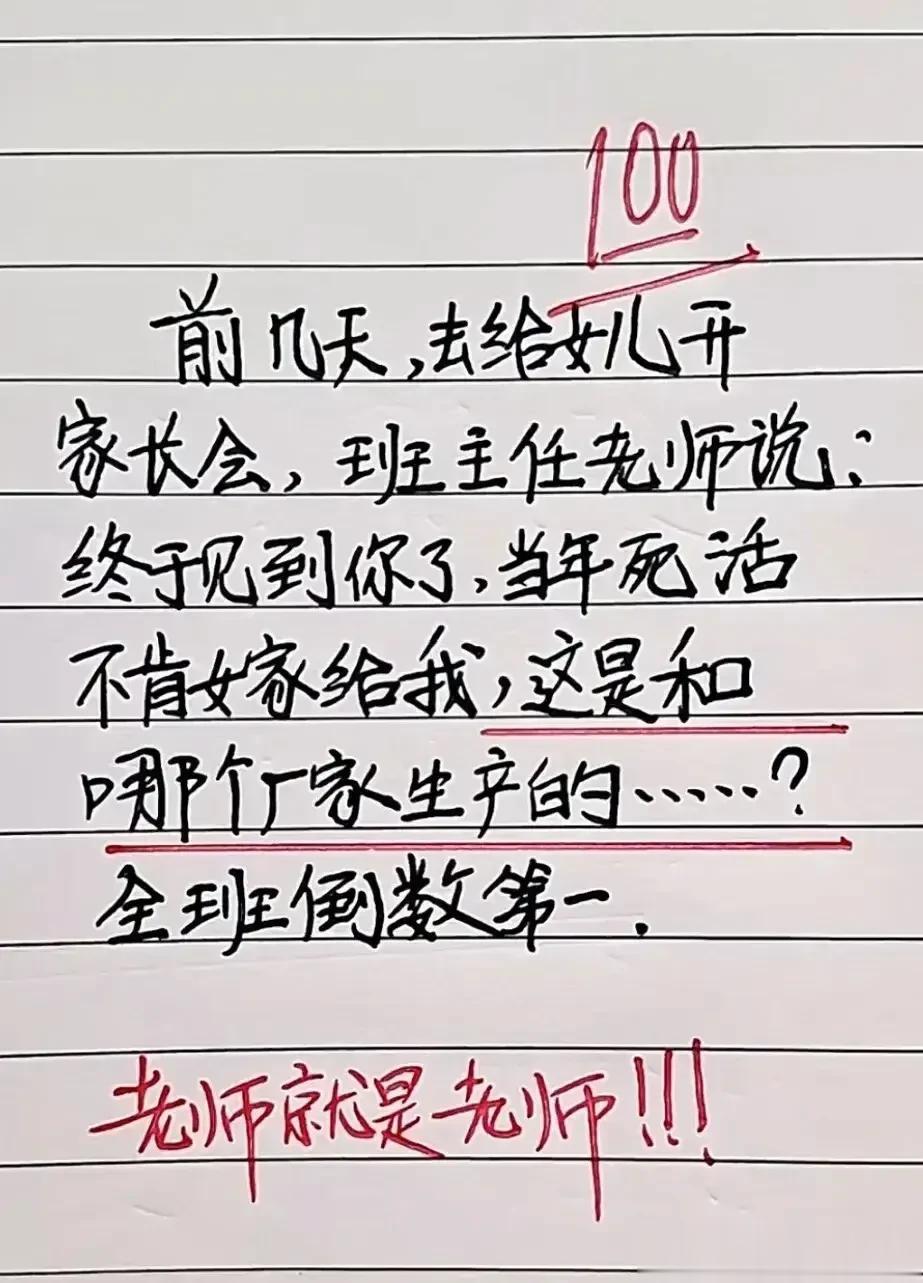 100
前几天,去给女儿开
家长会,班主任老师说:
终于见到你了,当年死活
不肯嫁给我,这是和
哪个厂家生产的……?
全班倒数第一.
老师就是老师!!!